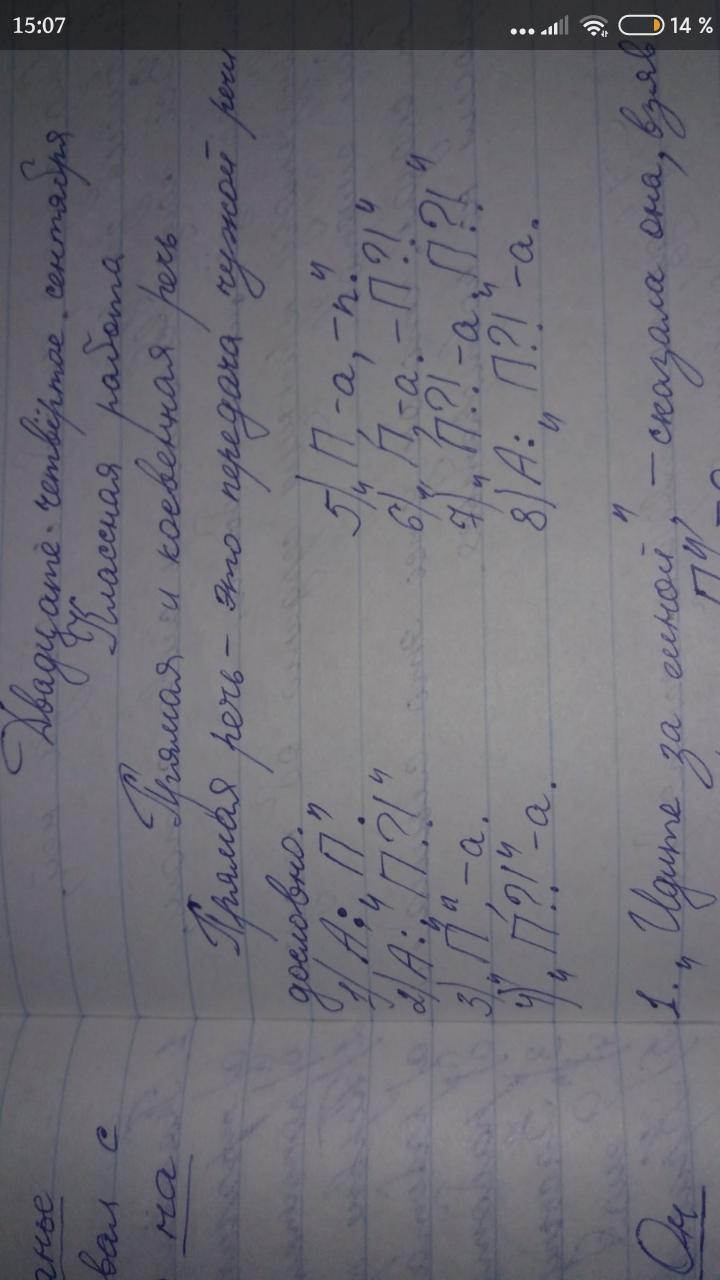 15:07
14 %
Двадцате четвёртое сентября
Классная работа
Прямая и косвенная речь.
Прямая речь – это передача чужой речи
дословно.
1) А: „П".
2) А: „П?!"
3) „П" – а.
4) „П?!" – а.
5) „П – а, – п."
6) „П – а. – П?!"
7) „П?! – а. П?!"
8) А: „П?!" – а.
1. „Идите за мной", – сказала она, взяв
П",
анье
вал с
на
Он